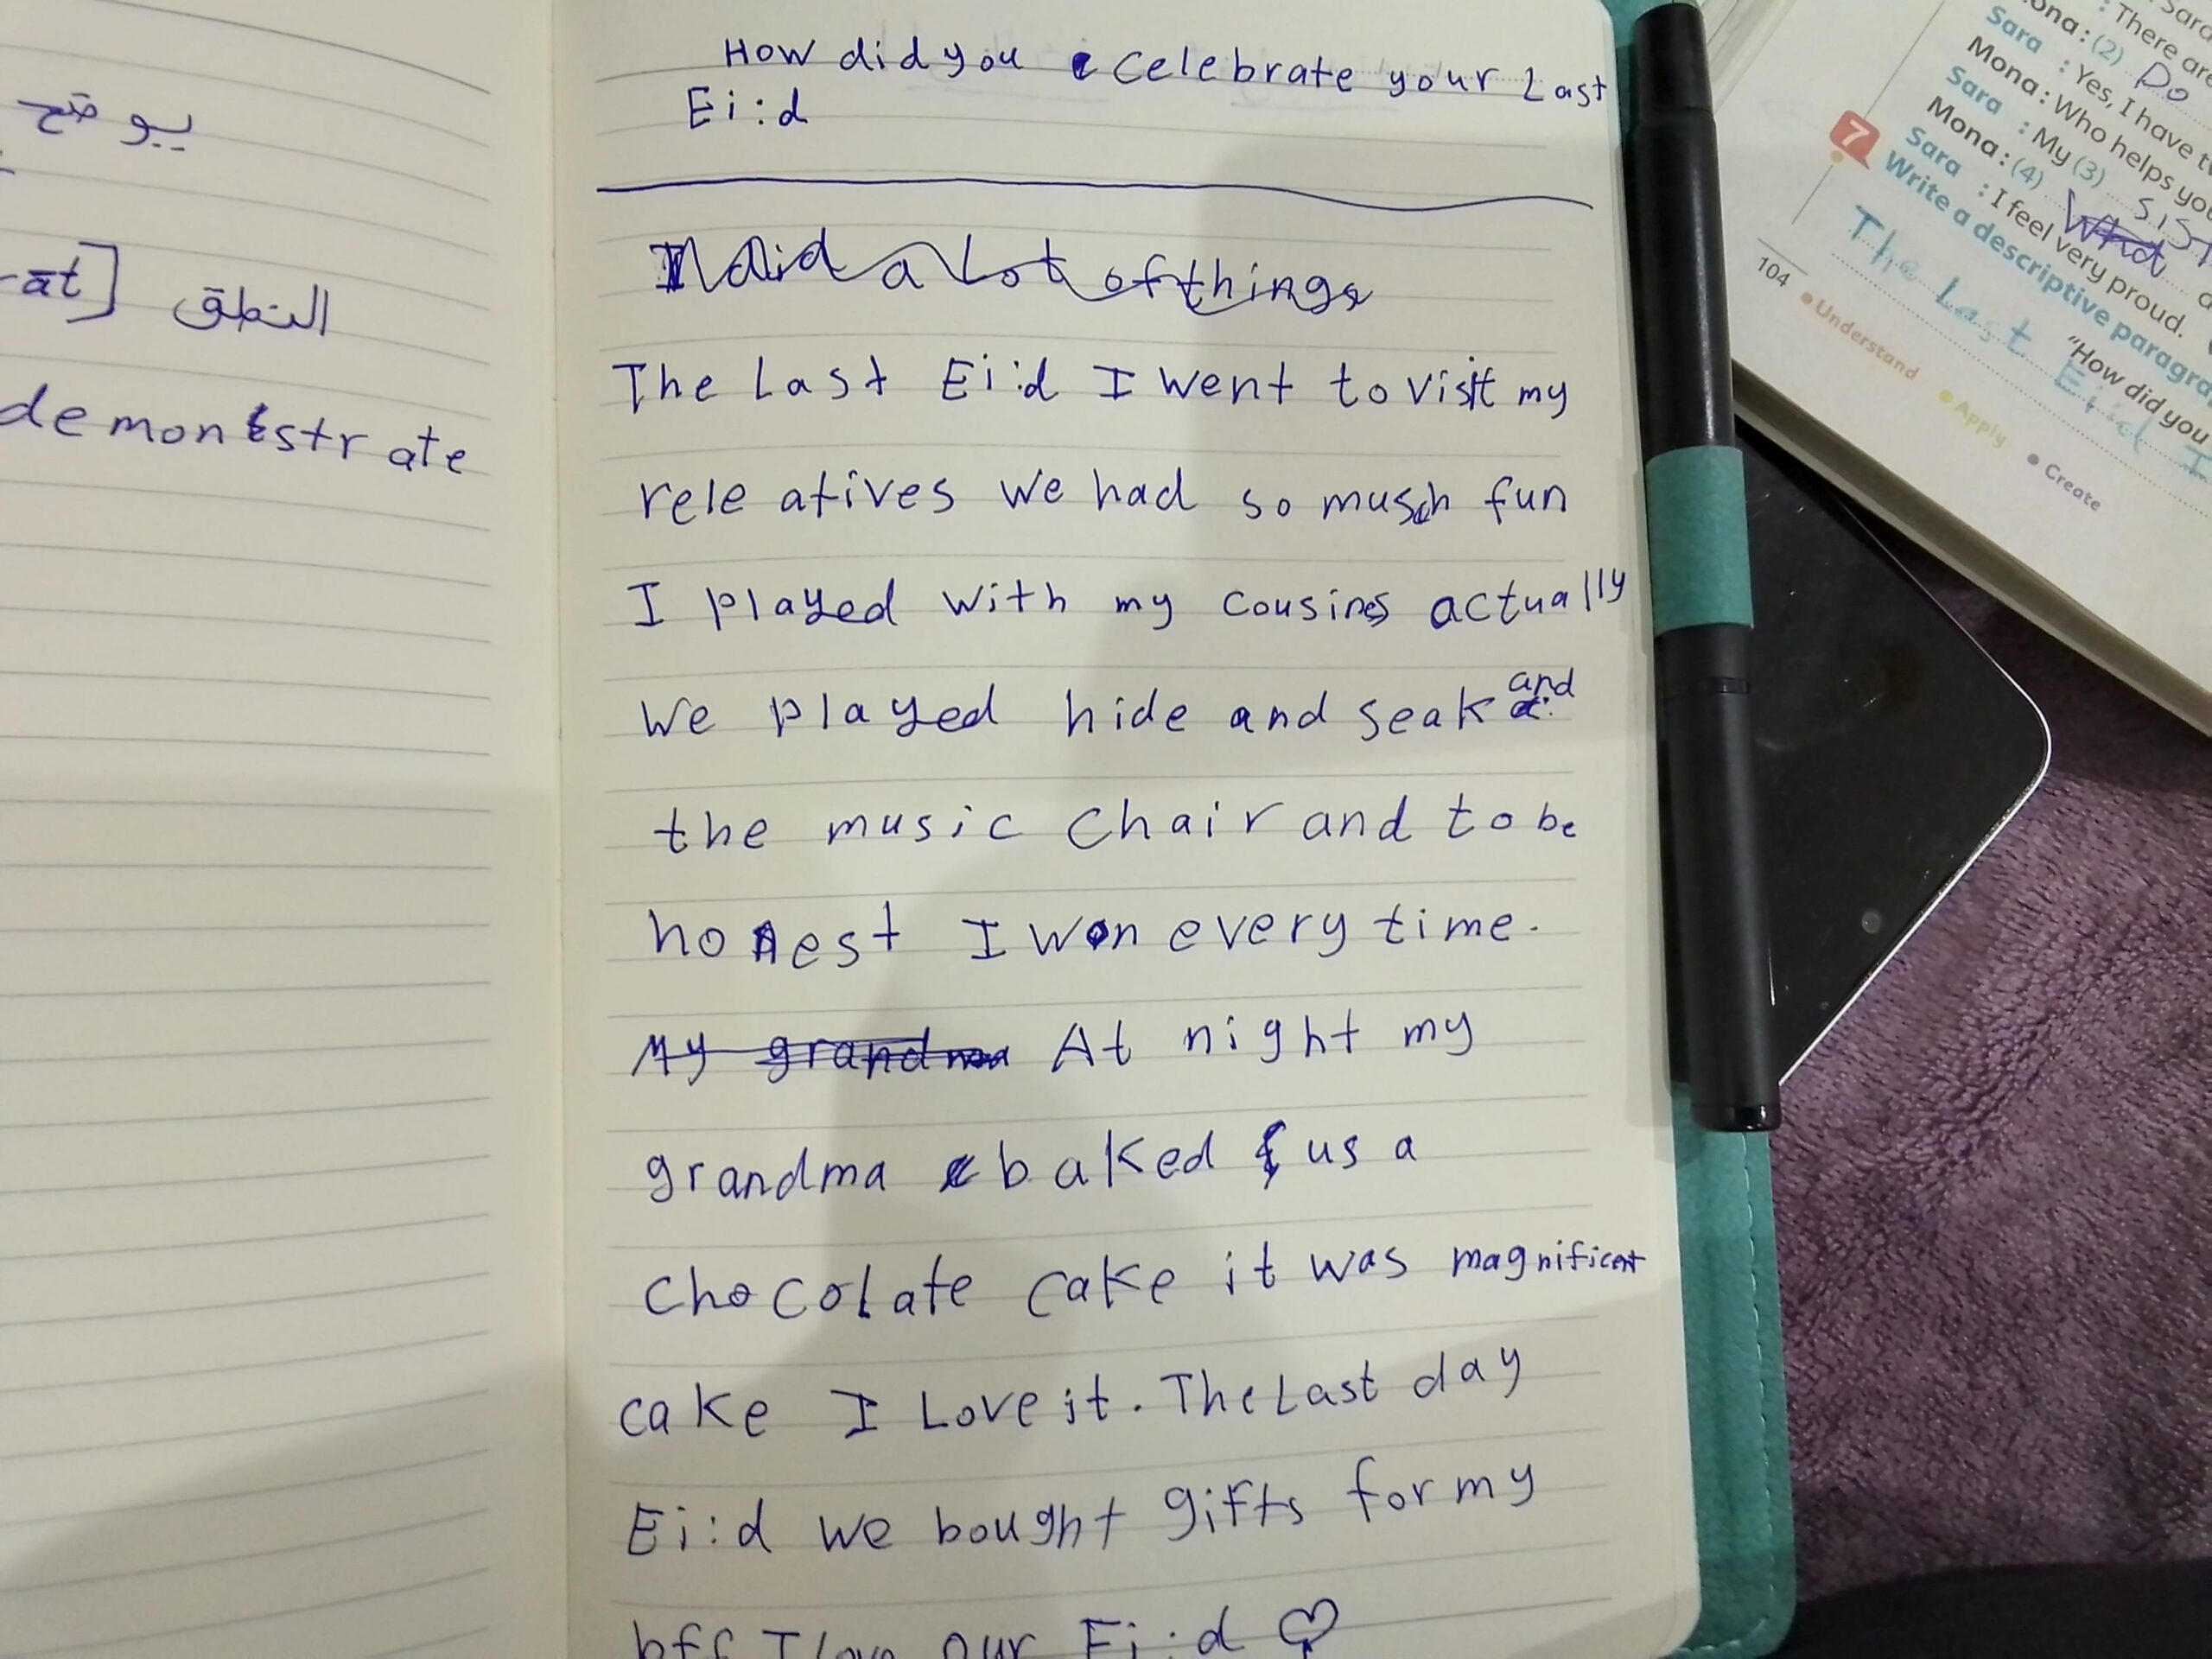 يوضح
-āt] النطق
demonstrate
How did you celebrate your Last
Ei:d
I did a Lot of things
The Last Ei:d I went to visit my
rele atives we had so musch fun
I played with my cousines actually
we played hide and seak and
the music chair and to be
honest I won every time.
My grandma At night my
grandma baked us a
chocolate cake it was magnificent
cake I Love it. The Last day
Ei:d we bought gifts for my
bff I love our Ei:d ♡
: There are
Mona : (2) Do
Sara : Yes, I have
Mona : Who helps you
Sara : My (3) sist
Mona : (4) What
Sara : I feel very proud.
7 Write a descriptive paragra
"How did you
The Last Eid I
104 Understand Apply Create